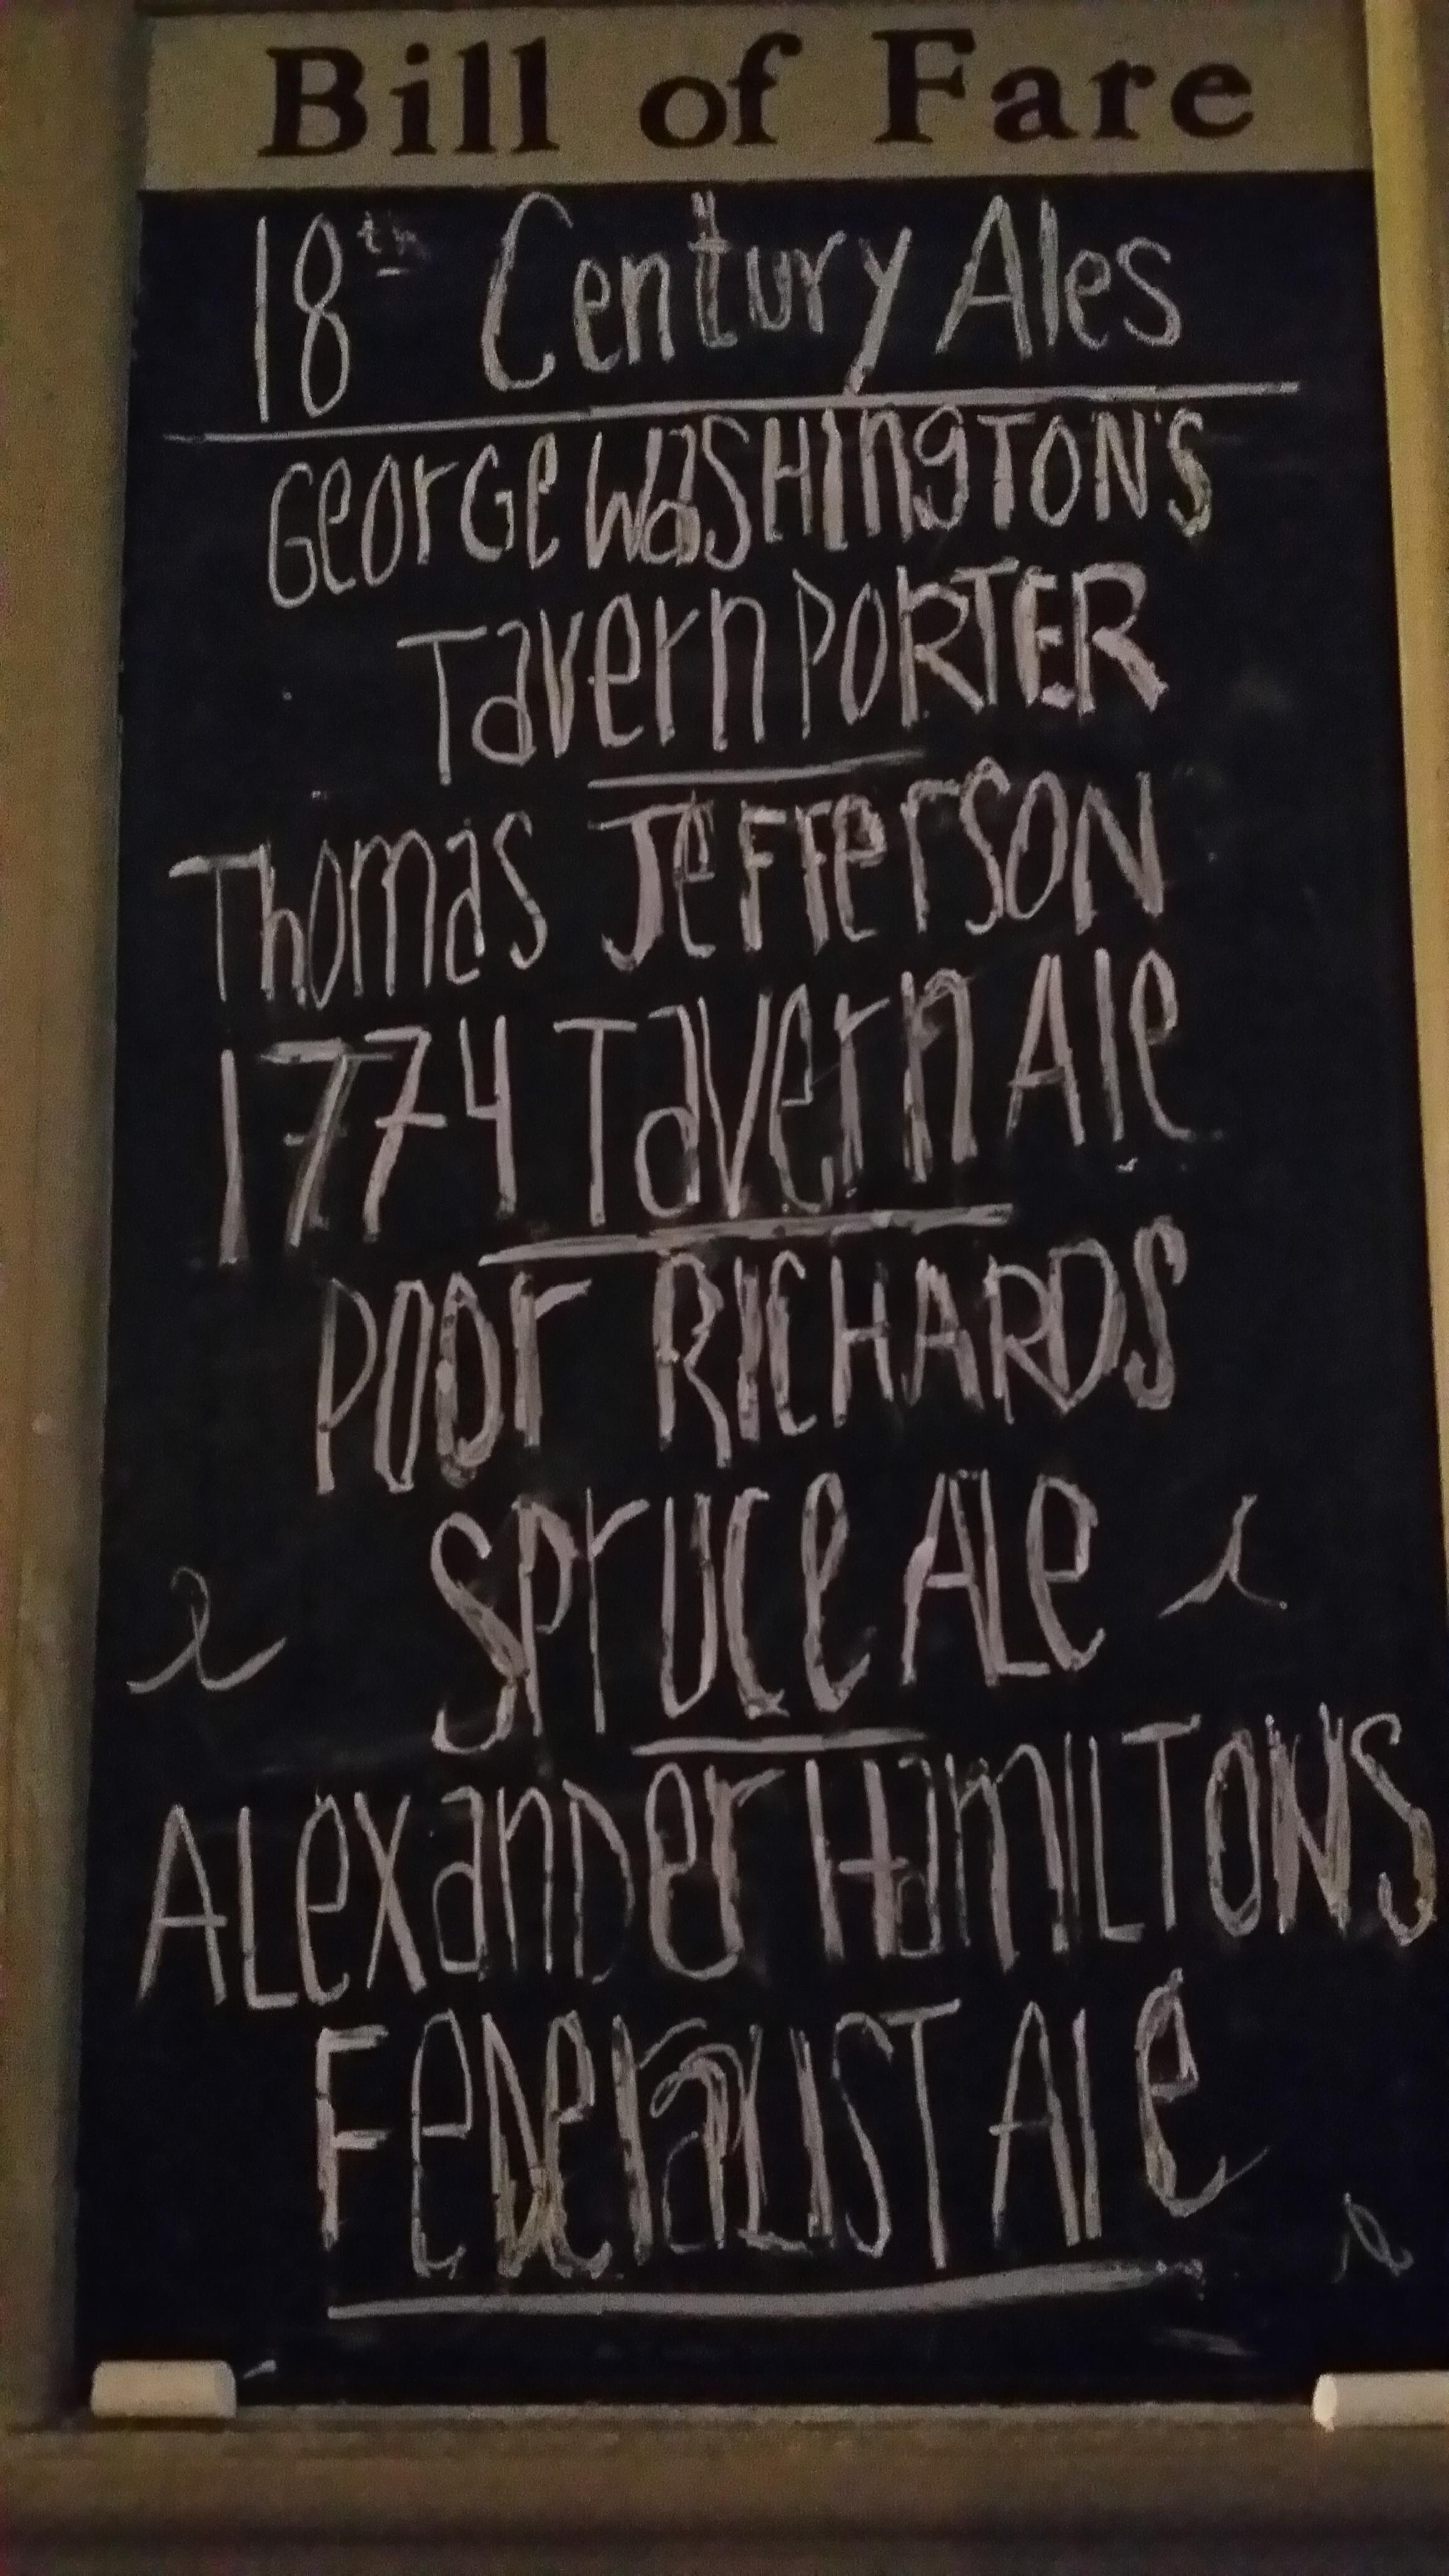 Bill of Fare
18th Century Ales
GeorGe WaSHingTON'S
Tavern PORTER
Thomas JEFFerSON
1774 Tavern Ale
POOr RICHARDS
SPruce ALe
ALexander HamILTONS
FeDeraLIST Ale